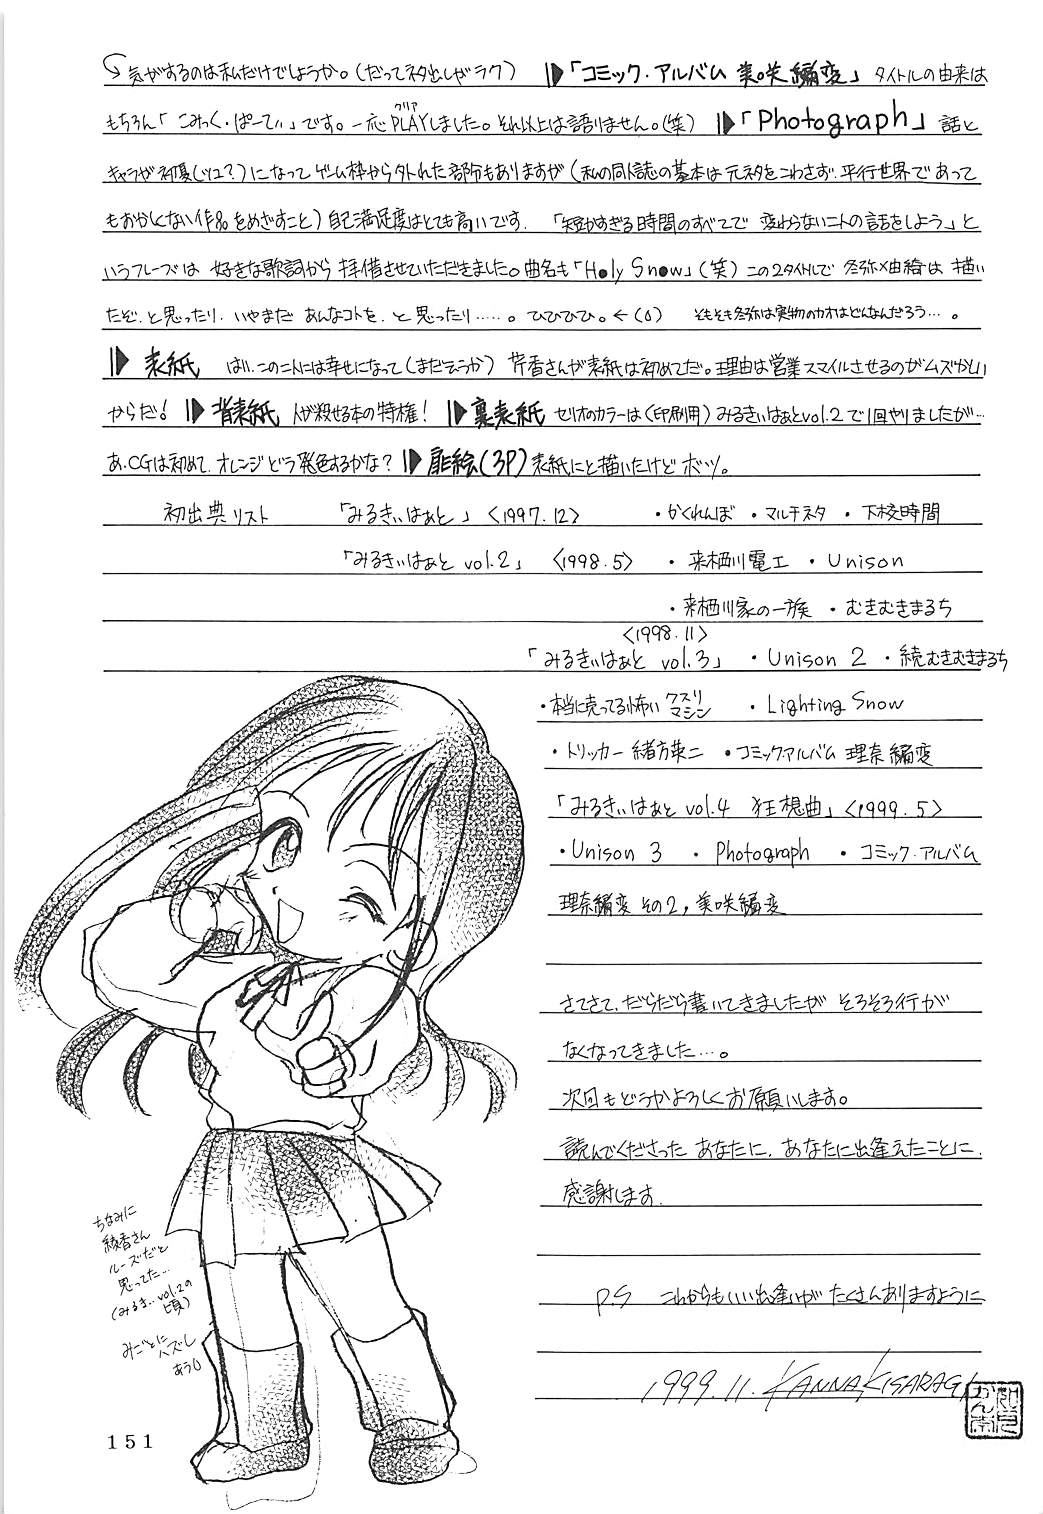 気がするのは私だけでしょうか。(だってネタ出しがラク) 「コミック・アルバム 美咲編変」 タイトルの由来は
もちろん「こみっく・ぱーてぃ」です。一応PLAYしました。それ以上は語りません。(笑) 「Photograph」 話と
クリア
キャラが初夏(ツユ?)になって ゲーム枠から外れた部分もありますが (私の同人誌の基本は元ネタをこわさず、平行世界であって
もおかしくない作品をめざすこと) 自己満足度はとても高いです。 「短かすぎる時間のすべてで 変わらない二人の話をしよう」と
いうフレーズは 好きな歌詞から 拝借させていただきました。曲名も「Holy Snow」(笑) この2タイトルで 冬弥×由綺は 描い
たぞ、と思ったり、いやまだ あんなコトを、と思ったり……。ひひひひ。←(o) そもそも冬弥は実物のカオはどんなんだろう…。
表紙 はい、この二人には幸せになって(まだそうか) 芹香さんが表紙は初めてだ。理由は営業スマイルさせるのがムズかしい
からだ! 背表紙 人が殺せる本の特権! 裏表紙 セリオのカラーは(印刷用) みるきぃはぁとvol.2で1回やりましたが…
あ、CGは初めて、オレンジどう発色するかな? 扉絵(3P) 表紙にと描いたけどボツ。
初出典リスト 「みるきぃはぁと」 〈1997.12〉 ・かくれんぼ ・マルチネタ ・下校時間
「みるきぃはぁと vol.2」 〈1998.5〉 ・来栖川電工 ・Unison
・来栖川家の一族 ・むきむきまるち
〈1998.11〉
「みるきぃはぁと vol.3」 ・Unison 2 ・続むきむきまるち
・本当に売ってる怖い クスリマシン ・Lighting Snow
・トリッカー 緒方英二 ・コミックアルバム 理奈編変
「みるきぃはぁと vol.4 狂想曲」〈1999.5〉
・Unison 3 ・Photograph ・コミック・アルバム
理奈編変 その2, 美咲編変
さてさて、だらだら書いてきましたが そろそろ行が
なくなってきました…。
次回もどうかよろしくお願いします。
読んでくださった あなたに、あなたに出逢えたことに
感謝します。
P.S これからもいい出逢いが たくさんありますように
1999.11. KANNA KISARAGI
如月
かん奈
ちなみに
綾香さん
ルーズだと
思ってた…
(みるき..vol.2の
頃)
みごとに
ハズし
あうﾘ
151